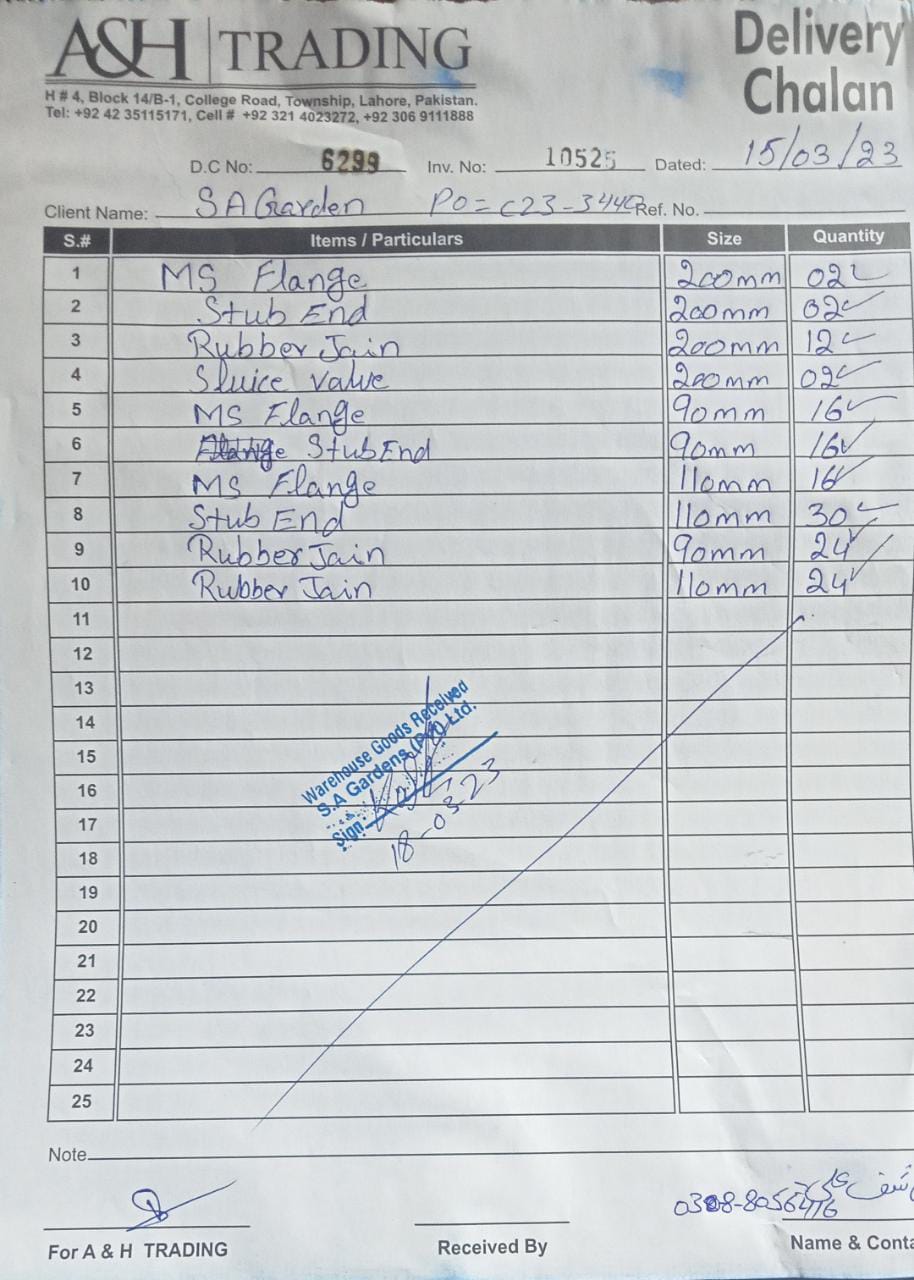 A&H TRADING
Delivery Chalan
H # 4, Block 14/B-1, College Road, Township, Lahore, Pakistan.
Tel: +92 42 35115171, Cell # +92 321 4023272, +92 306 9111888
D.C No: 6299 Inv. No: 10525 Dated: 15/03/23
Client Name: SA Garden PO = C23-344 Ref. No.
S.# Items / Particulars Size Quantity
1 MS Flange 200mm 02
2 Stub End 200mm 02
3 Rubber Jain 200mm 12
4 Sluice valve 200mm 02
5 MS Flange 90mm 16
6 Stub End 90mm 16
7 MS Flange 110mm 16
8 Stub End 110mm 30
9 Rubber Jain 90mm 24
10 Rubber Jain 110mm 24
11
12
13
14
15
16
17
18
19
20
21
22
23
24
25
Warehouse Goods Received
S.A Gardens (Pvt) Ltd.
Sign:
18-03-23
Note
0308-8056416
For A & H TRADING Received By Name & Conta